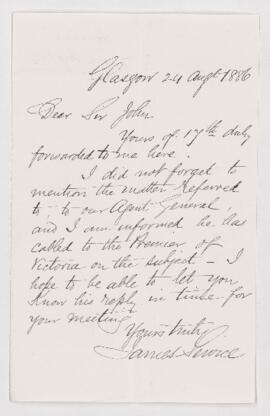 Glasgow 24 Augt 1886
Dear Sir John.
Yours of 17th duly
forwarded to me here.
I did not forget to
mention the matter referred
to, to our Agent General,
and I am informed he has
called to the Premier of
Victoria on the subject - I
hope to be able to let you
know his reply in time for
your meeting
Yours truly
James Service